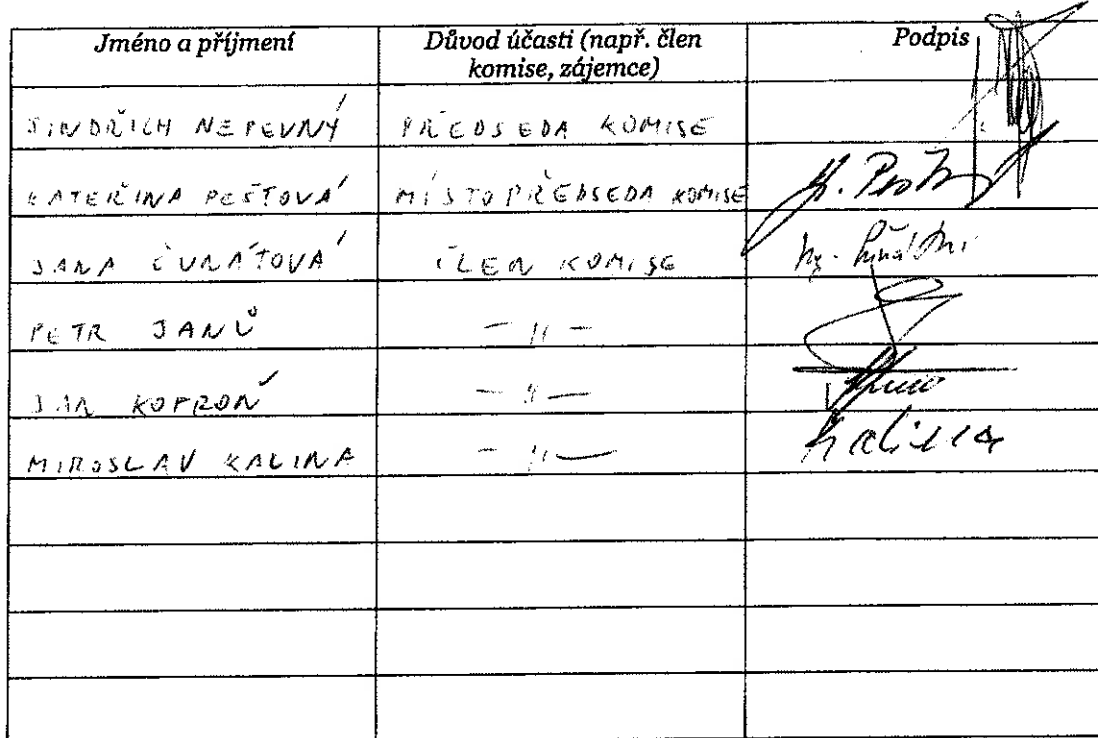 Jméno a příjmení Důvod účasti (např. člen komise, zájemce) Podpis
JINDŘICH NEPEVNÝ PŘEDSEDA KOMISE
KATEŘINA PEŠTOVÁ MÍSTOPŘEDSEDA KOMISE
JANA ČUNÁTOVÁ ČLEN KOMISE
PETR JANŮ - 11 -
JAN KOPROŇ - 11 -
MIROSLAV KALINA - 11 - Kalina